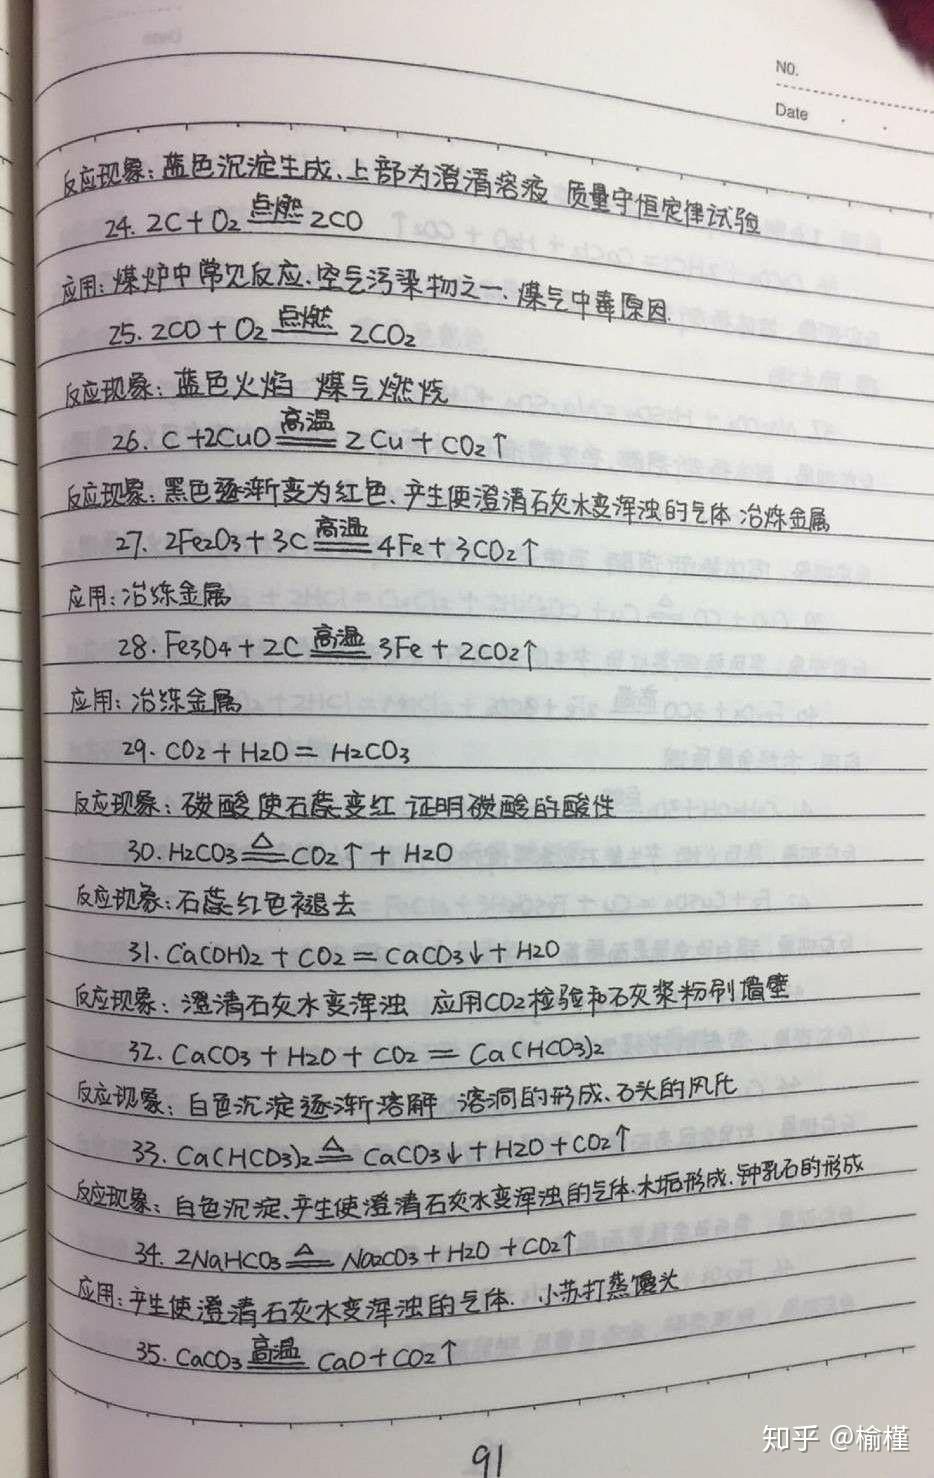 NO.
Date
反应现象:蓝色沉淀生成、上部为澄清溶液 质量守恒定律试验
24. 2C + O2 点燃 2CO
应用:煤炉中常见反应、空气污染物之一、煤气中毒原因.
25. 2CO + O2 点燃 2CO2
反应现象:蓝色火焰 煤气燃烧
26. C +2CuO 高温 2Cu + CO2↑
反应现象:黑色逐渐变为红色、产生使澄清石灰水变浑浊的气体 冶炼金属
27. 2Fe2O3 + 3C 高温 4Fe + 3CO2↑
应用:冶炼金属
28. Fe3O4 + 2C 高温 3Fe + 2CO2↑
应用:冶炼金属
29. CO2 + H2O = H2CO3
反应现象:碳酸使石蕊变红 证明碳酸的酸性
30. H2CO3 △ CO2↑ + H2O
反应现象:石蕊红色褪去
31. Ca(OH)2 + CO2 = CaCO3↓ + H2O
反应现象:澄清石灰水变浑浊 应用CO2检验和石灰浆粉刷墙壁
32. CaCO3 + H2O + CO2 = Ca(HCO3)2
反应现象:白色沉淀逐渐溶解 溶洞的形成、石头的风化
33. Ca(HCO3)2 △ CaCO3↓ + H2O + CO2↑
反应现象:白色沉淀、产生使澄清石灰水变浑浊的气体.水垢形成.钟乳石的形成
34. 2NaHCO3 △ Na2CO3 + H2O + CO2↑
应用:产生使澄清石灰水变浑浊的气体. 小苏打蒸馒头
35. CaCO3 高温 CaO + CO2↑
91
知乎 @榆槿